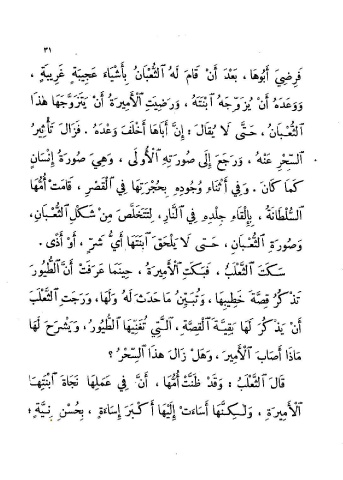 ٣١
فَرَضِيَ أَبُوهَا ، بَعْدَ أَنْ قَامَ لَهُ ٱلثُّعْبَانُ بِأَشْيَاءَ عَجِيبَةٍ غَرِيبَةٍ ،
وَوَعَدَهُ أَنْ يُزَوِّجَهُ ٱبْنَتَهُ ، وَرَضِيَتِ ٱلْأَمِيرَةُ أَنْ يَتَزَوَّجَهَا هٰذَا
ٱلثُّعْبَانُ ، حَتَّى لَا يُقَالَ : إِنَّ أَبَاهَا أَخْلَفَ وَعْدَهُ . فَزَالَ تَأْثِيرُ
ٱلسِّحْرِ عَنْهُ ، وَرَجَعَ إِلَى صُورَتِهِ ٱلْأُولَى ، وَهِيَ صُورَةُ إِنْسَانٍ
كَمَا كَانَ . وَفِي أَثْنَاءِ وُجُودِهِ بِحُجْرَتِهَا فِي ٱلْقَصْرِ ، قَامَتْ أُمُّهَا
ٱلسُّلْطَانَةُ ، بِإِلْقَاءِ جِلْدِهِ فِي ٱلنَّارِ، لِتَتَخَلَّصَ مِنْ شَكْلِ ٱلثُّعْبَانِ،
وَصُورَةِ ٱلثُّعْبَانِ ، حَتَّى لَا يَلْحَقَ ٱبْنَتَهَا أَيُّ شَرٍّ ، أَوْ أَذًى .
سَكَتَ ٱلثَّعْلَبُ ، فَبَكَتِ ٱلْأَمِيرَةُ ، حِينَمَا عَرَفَتْ أَنَّ ٱلطُّيُورَ
تَذْكُرُ قِصَّةَ خَطِيبِهَا ، وَتُبَيِّنُ مَا حَدَثَ لَهُ وَلَهَا، وَرَجَتِ ٱلثَّعْلَبَ
أَنْ يَذْكُرَ لَهَا بَقِيَّةَ ٱلْقِصَّةِ ، ٱلَّتِي تُغَنِّيهَا ٱلطُّيُورُ ، وَيَشْرَحَ لَهَا
مَاذَا أَصَابَ ٱلْأَمِيرَ ، وَهَلْ زَالَ هٰذَا ٱلسِّحْرُ ؟
قَالَ ٱلثَّعْلَبُ : وَقَدْ ظَنَّتْ أُمُّهَا ، أَنَّ فِي عَمَلِهَا نَجَاةَ ٱبْنَتِهَا
ٱلْأَمِيرَةِ ، وَلٰكِنَّهَا أَسَاءَتْ إِلَيْهَا أَكْبَرَ إِسَاءَةٍ ، بِحُسْنِ نِيَّةٍ ؛